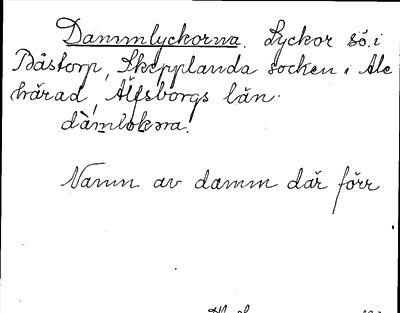 Dammlyckorna. Lyckor sö. i
Båstorp, Skepplanda socken i Ale
härad, Älfsborgs län.
Namn av damm där förr